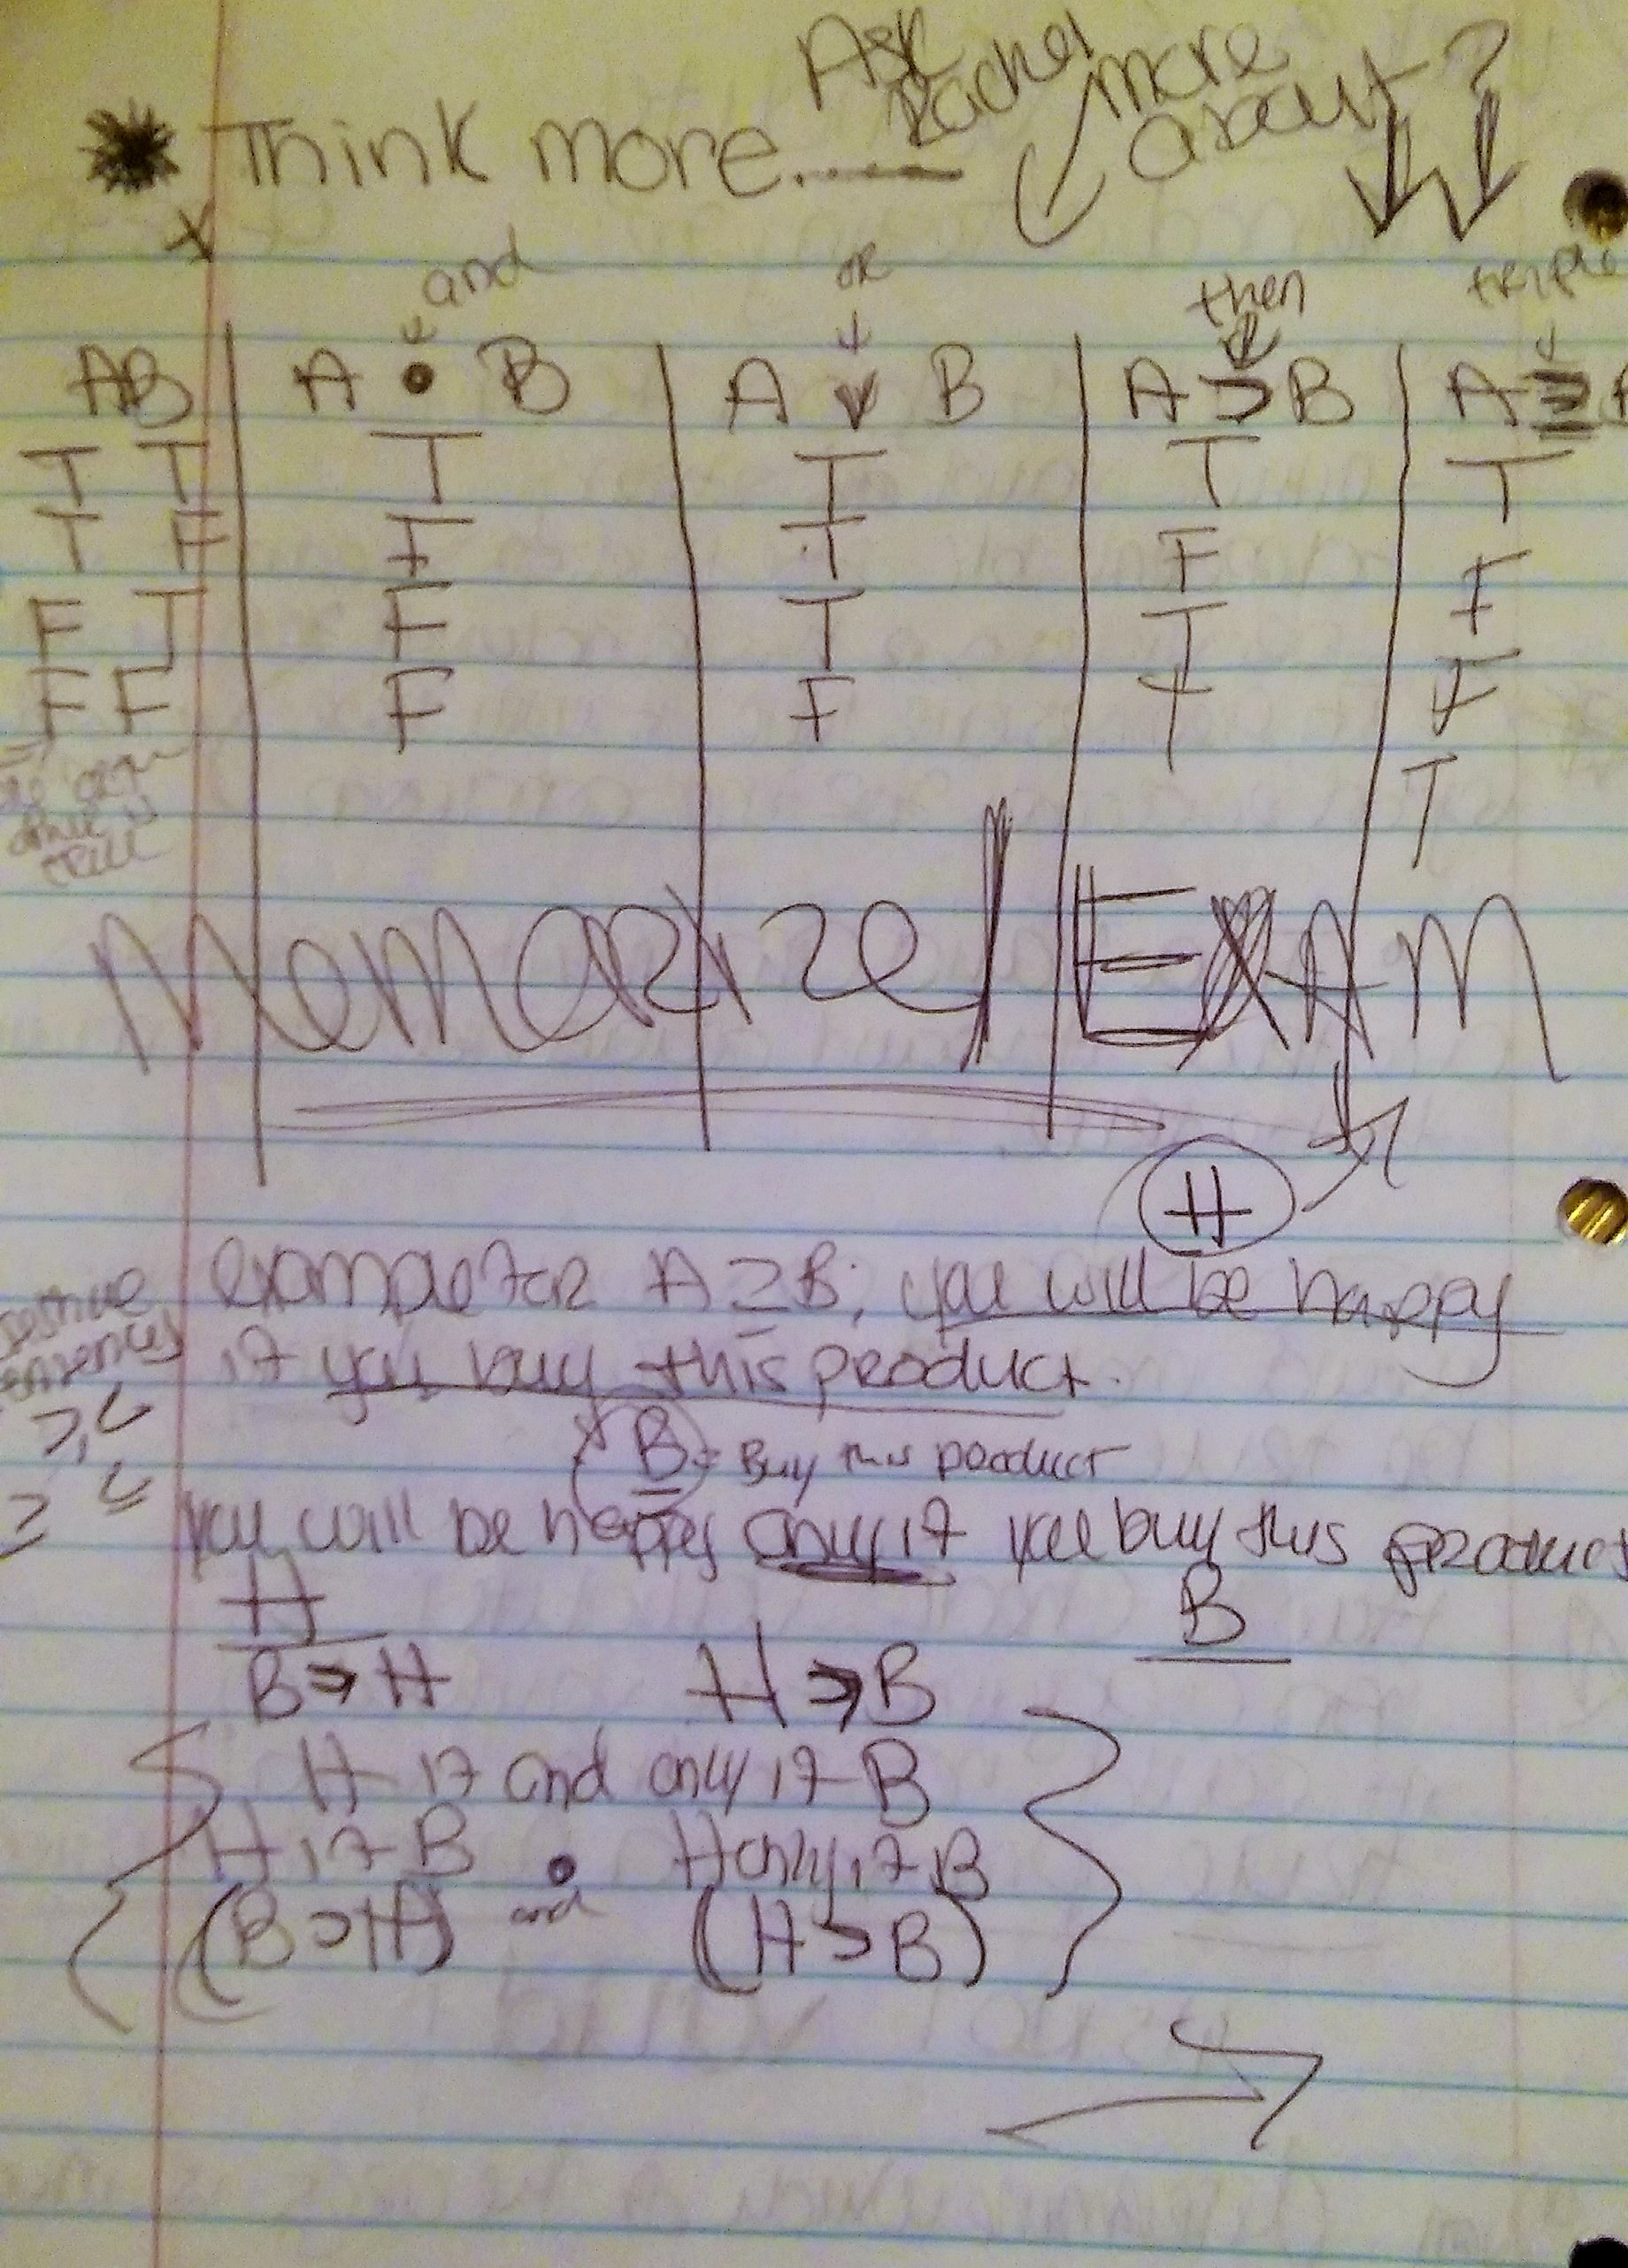 Ask Rachel more about?
* Think more......
and or then triple
AB A • B A v B A ⊃ B A ≡
T T T T T T
T F F T F F
F T F T T F
F F F F T F
T
true
Memorize! EXAM
H
example for A ≥ B; you will be happy
if you buy this product.
B = Buy this product
>, <
≥ ≤
you will be happy only if you buy this product
H B
B ⊃ H H ⊃ B
H if and only if B
H if B • H only if B
(B ⊃ H) and (H ⊃ B)